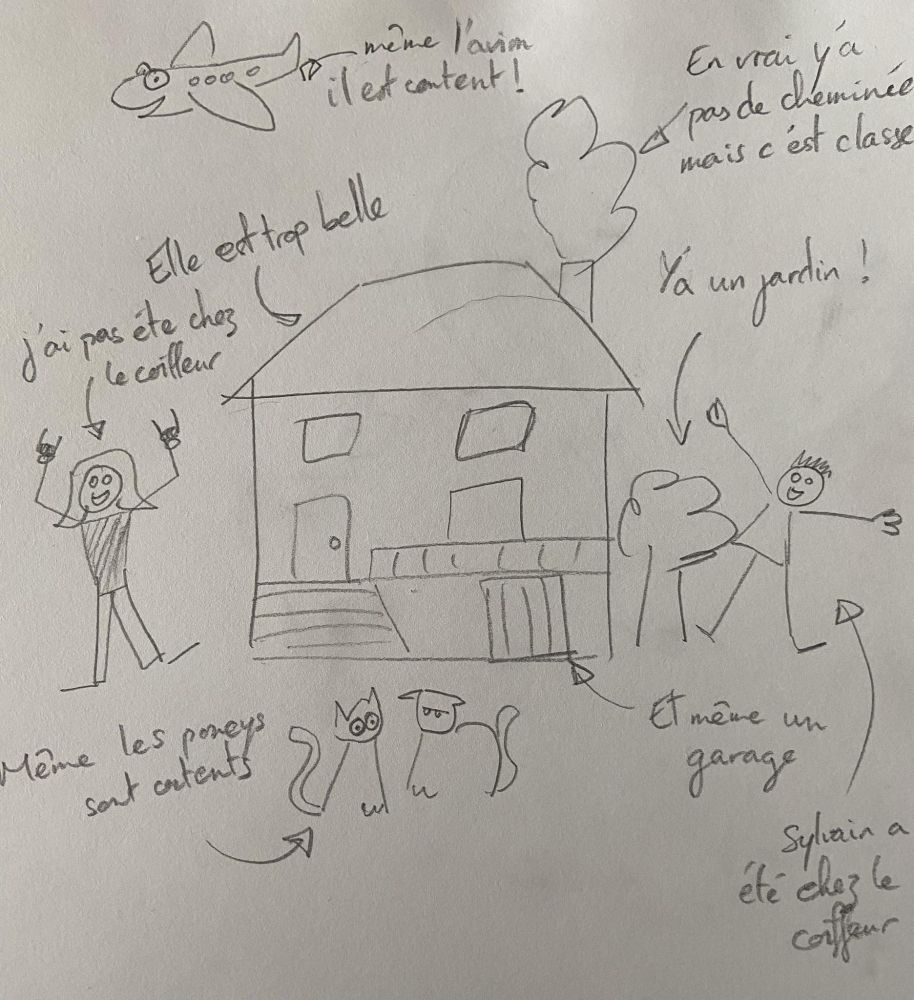 même l'avion
il est content !
En vrai y'a
pas de cheminée
mais c'est classe
Elle est trop belle
Y'a un jardin !
j'ai pas éte chez
le coiffeur
Même les poneys
sont contents
Et même un
garage
Sylvain a
été chez le
coiffeur